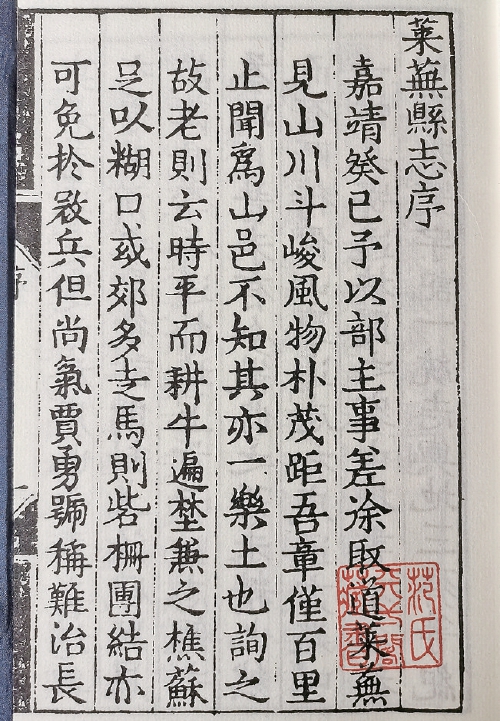 莱蕪縣志序
嘉靖癸巳予以部主事差徐取道莱蕪
見山川斗峻風物朴茂距吾章僅百里
止聞爲山邑不知其亦一樂土也詢之
故老則云時平而耕牛遍埜兼之樵蘇
足以糊口或郊多走馬則砦柵團結亦
可免於兵但尚氣賈勇號稱難治長
范氏
天一閣
藏書
序